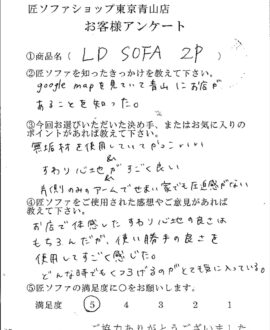 匠ソファショップ東京青山店
お客様アンケート
①商品名( LD SOFA 2P )
②匠ソファを知ったきっかけを教えて下さい。
google mapを見ていて青山にお店が
あることを知った。
③今回お選びいただいた決め手、またはお気に入りの
ポイントがあれば教えて下さい。
無垢材を使用していてかっこいい
&
すわり心地がすごく良い
&
片側のみのアームでせまい家でも圧迫感がない
④匠ソファをご使用された感想やご意見があれば
教えて下さい。
お店で体感したすわり心地の良さは
もちろんだが、使い勝手の良さを
使用してすごく感じた。
どんな時でもくつろげるのがとても気に入っている。
⑤匠ソファの満足度に○をお願いします。
満足度 5 4 3 2 1
ご協力ありがとうございました